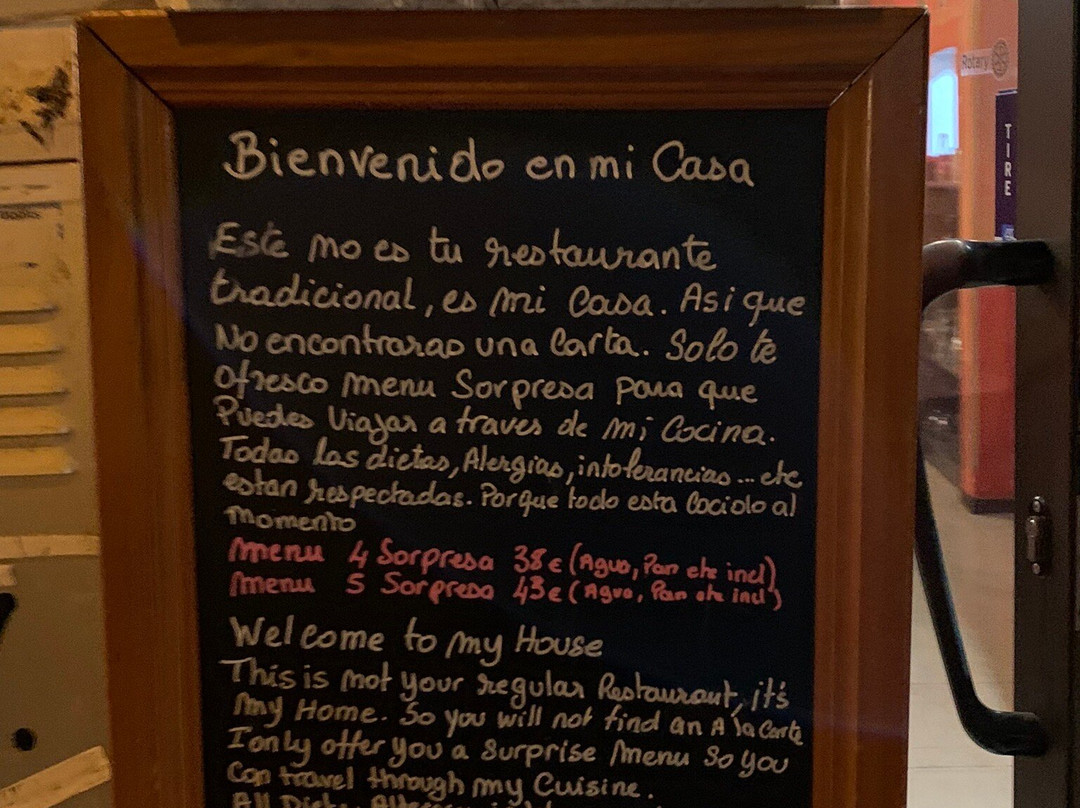 Bienvenido en mi Casa
Este no es tu restaurante
tradicional, es mi Casa. Asi que
No encontraras una Carta. Solo te
ofresco menu Sorpresa para que
Puedes Viajar a traves de mi Cocina.
Todas las dietas, Alergias, intolerancias... etc
estan respectadas. Porque todo esta Cociolo al
Momento
Menu 4 Sorpresa 38€ (Agua, Pan etc incl)
Menu 5 Sorpresa 43€ (Agua, Pan etc incl)
Welcome to my House
This is not your regular Restaurant, it's
My Home. So you will not find an A la Carte
I only offer you a surprise Menu So you
Can travel through my Cuisine.
All
Rotary
TIRE